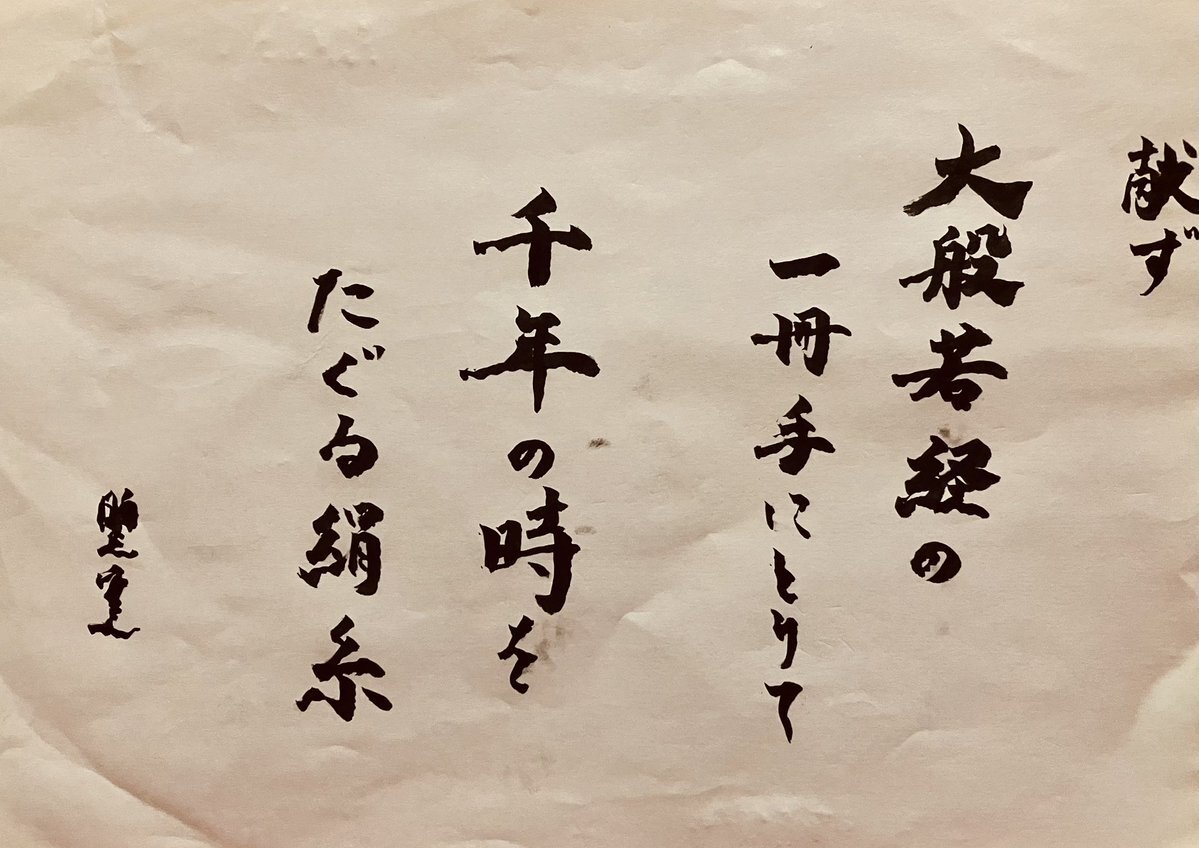 献ず
大般若経の
一冊手にとりて
千年の時を
たぐる絹糸